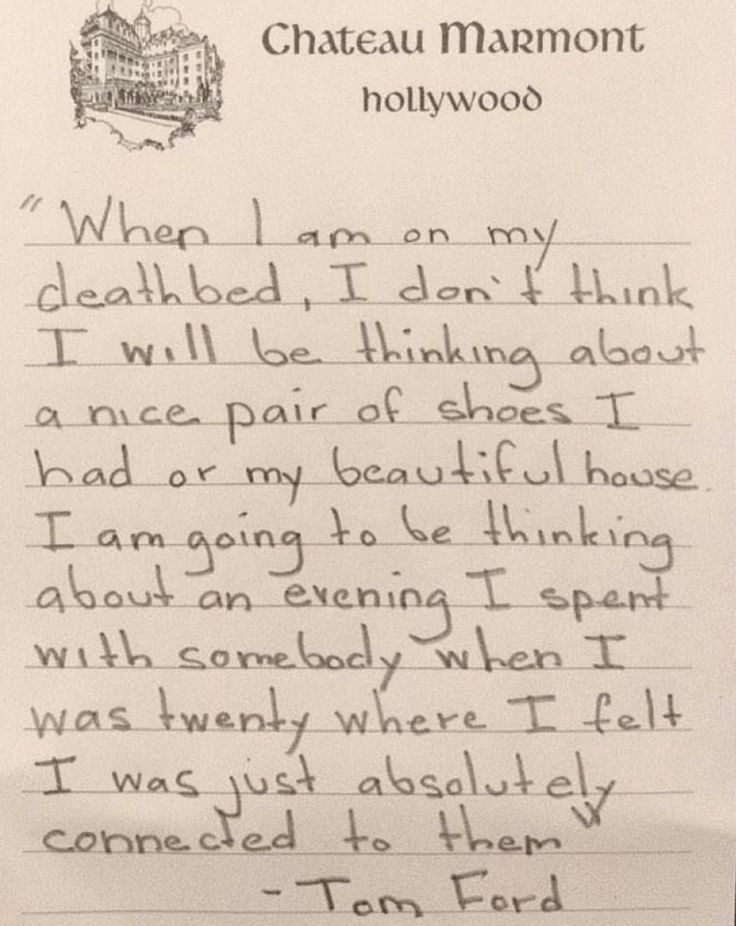 Chateau Marmont
hollywood
"When I am on my
deathbed, I don't think
I will be thinking about
a nice pair of shoes I
had or my beautiful house.
I am going to be thinking
about an evening I spent
with somebody when I
was twenty where I felt
I was just absolutely
connected to them"
- Tom Ford